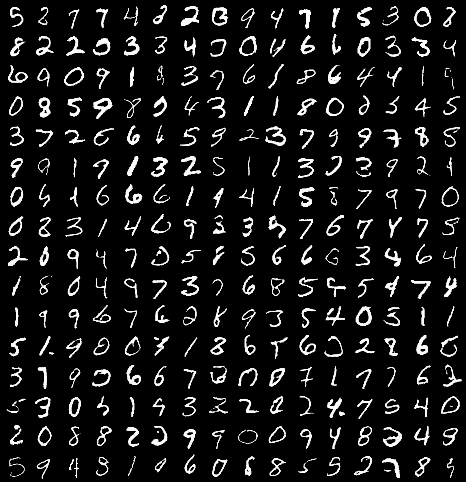 5 8 9 7 4 8 2 3 9 4 7 1 5 3 0 8
8 2 2 0 3 3 4 0 0 4 6 6 0 3 3 9
6 9 0 9 1 8 3 7 6 1 8 6 4 4 1 9
0 8 5 9 8 0 4 3 1 1 8 0 5 4 5
3 7 2 6 6 6 5 9 2 3 7 9 9 7 8 8
9 9 1 9 1 3 2 5 1 1 3 3 9 2 1
0 4 1 6 6 6 1 9 4 1 5 8 7 9 7 0
0 8 3 1 4 0 9 3 3 5 7 6 7 4 7 5
2 0 9 4 7 0 5 8 5 6 6 6 3 4 6 4
1 8 0 4 9 7 3 7 6 8 5 5 5 4 7 4
1 9 9 6 7 6 2 8 9 3 5 4 0 5 1 1
5 1 9 0 0 1 8 6 5 6 0 2 8 6 0
3 7 9 0 6 6 7 0 0 7 1 7 7 6 2
5 3 0 5 1 9 3 2 2 2 4 7 5 4 0
2 0 8 8 2 2 9 9 0 0 9 4 8 2 4 9
5 9 4 8 1 9 6 0 5 8 5 5 2 7 8 9